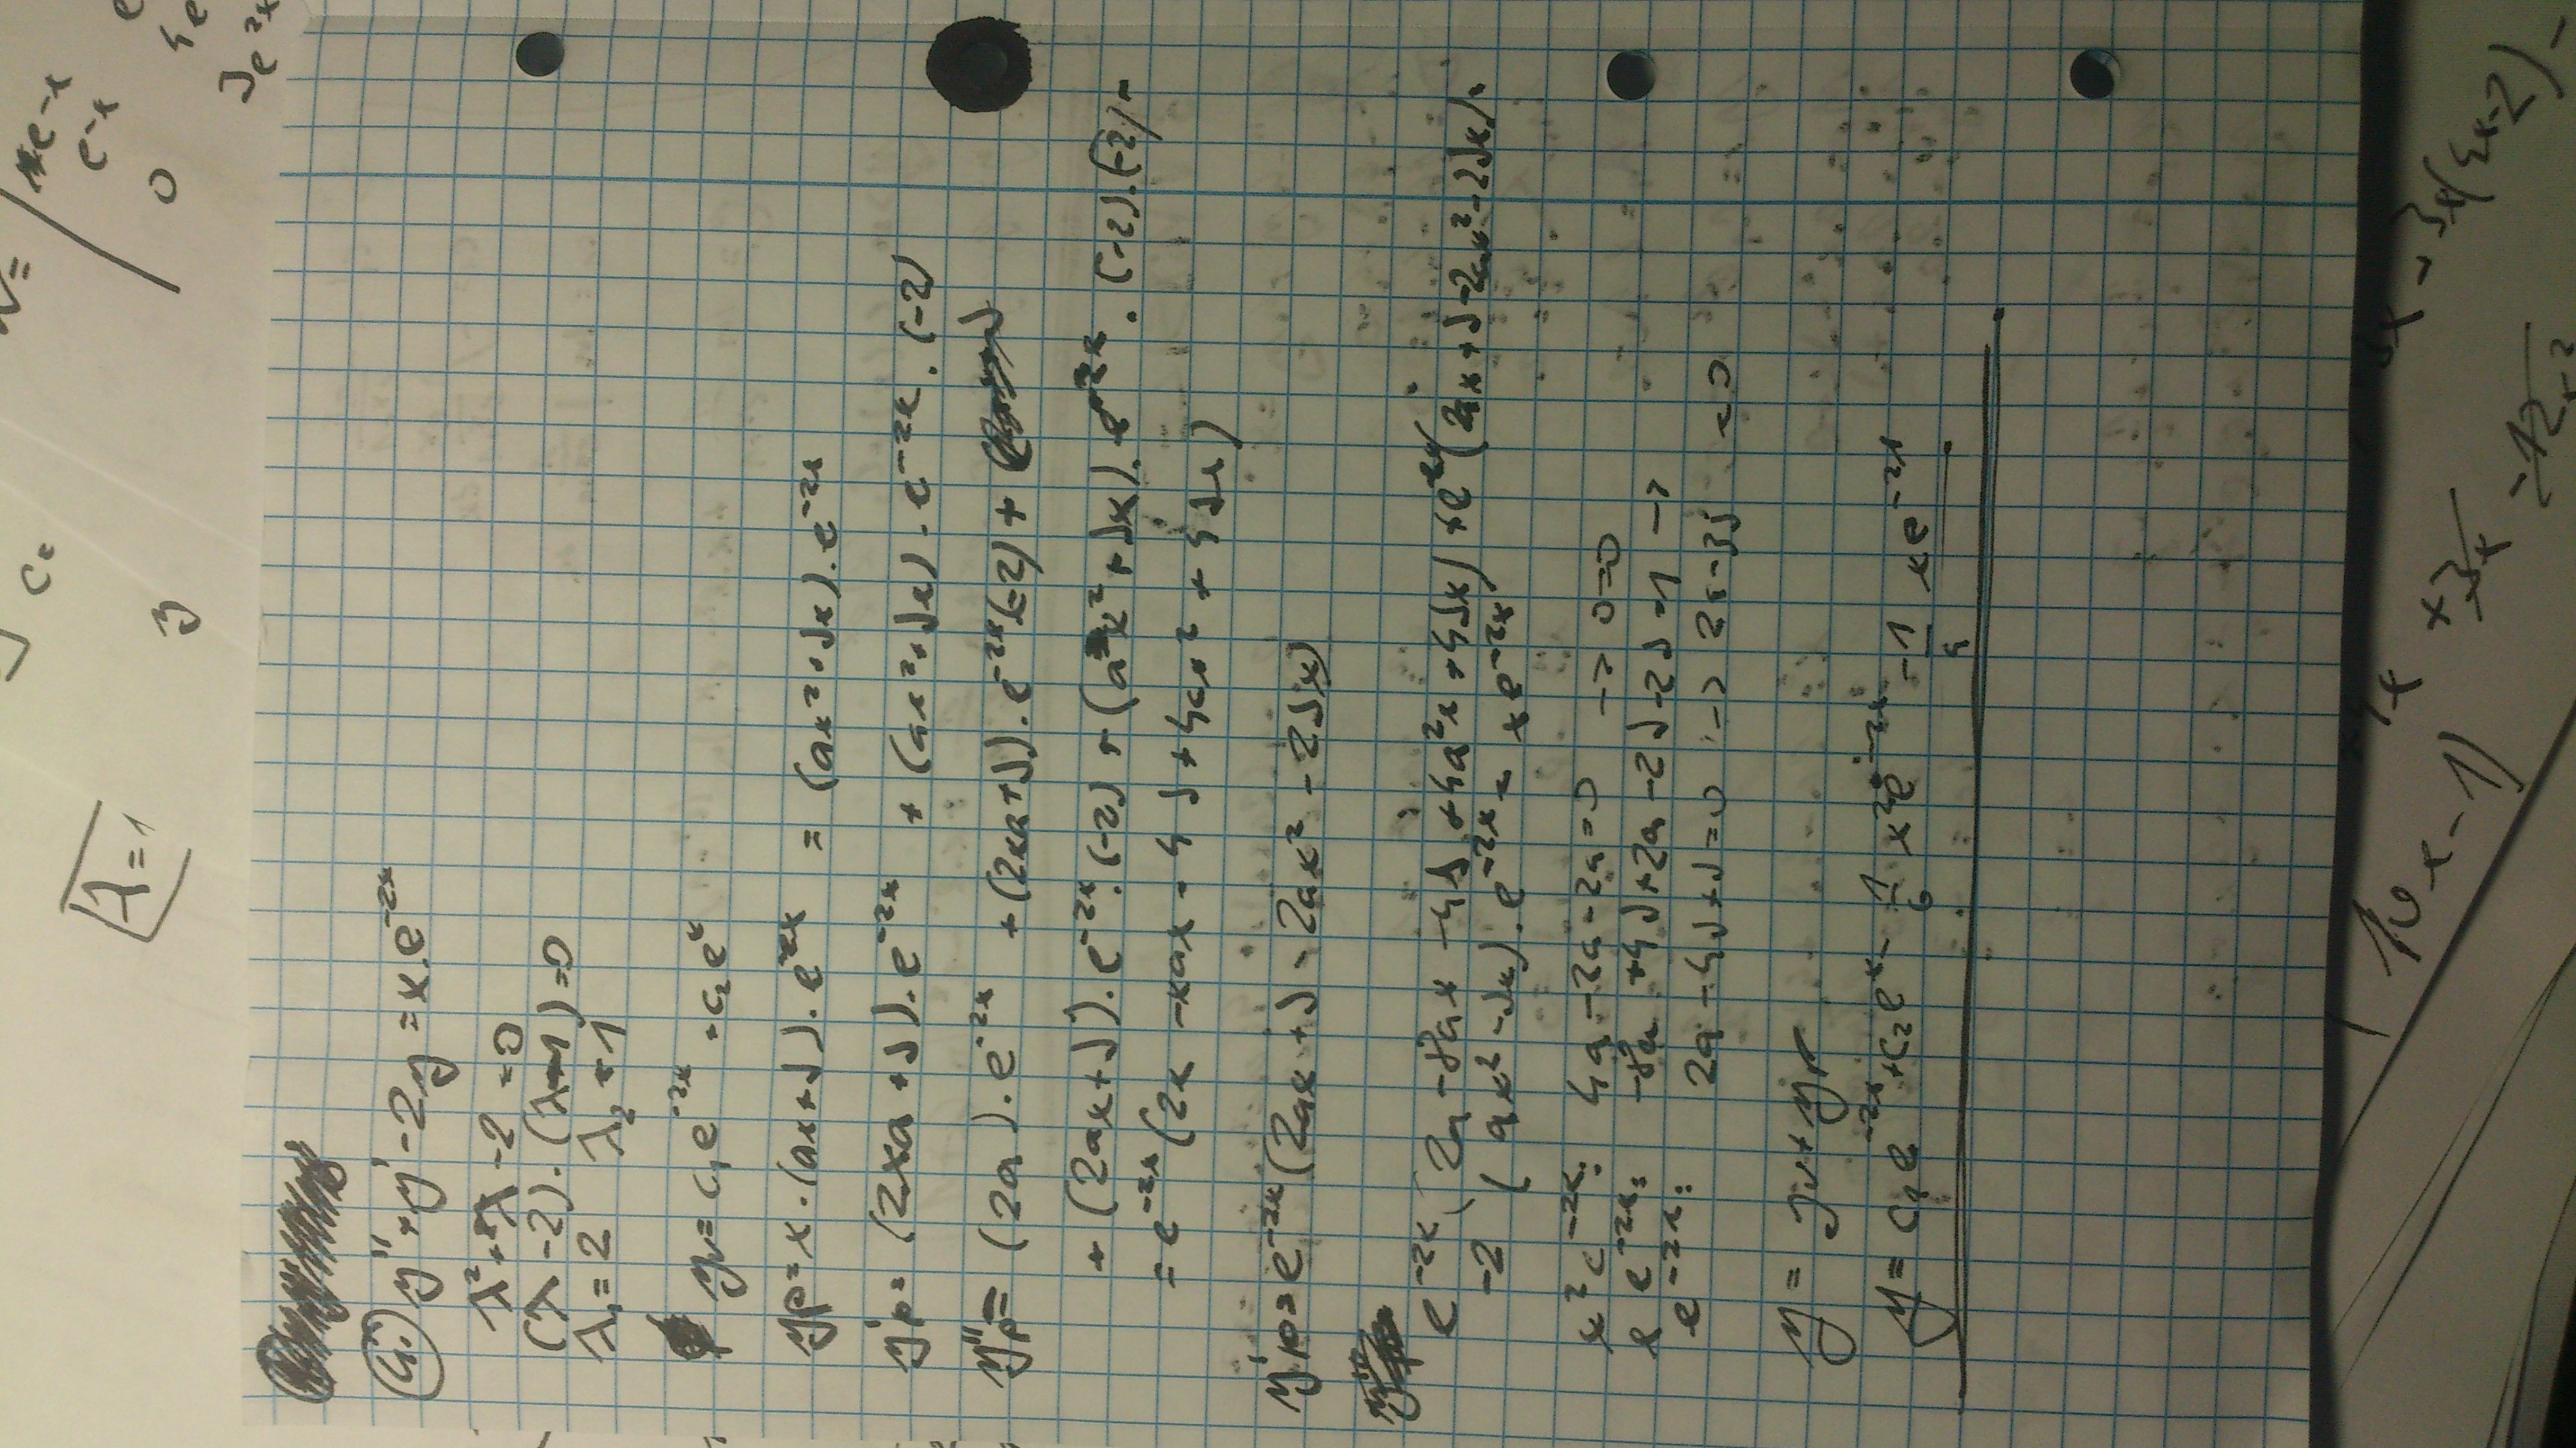 c=
λ=1
y
e-x
e-x
0
4e
be 2x
4. y'' + y' - 2y = x.e^-2x
λ² + λ - 2 = 0
(λ - 2) . (λ + 1) = 0
λ₁ = 2 λ₂ = 1
yv = c₁e^-2x + c₂e^x
yp = x . (ax + b) . e^-2x = (ax² + bx) . e^-2x
y'p = (2xa + b) . e^-2x + (ax² + bx) . e^-2x . (-2)
y''p = (2a) . e^-2x + (2xa + b) . e^-2x (-2) +
+ (2ax + b) . e^-2x . (-2) + (ax² + bx) . e^-2x . (-2) . (-2) =
= e^-2x (2x - xax - 4b + 4ax² + 4bx)
y'p = e^-2x (2ax + b - 2ax² - 2bx)
e^-2x (2a - 8ax - 4b + 4a²x + 4bx) + e^-2x (2ax + b - 2ax² - 2bx) -
-2 (ax² - bx) . e^-2x = xe^-2x
x²e^-2x: 4a - 2a - 2a = 0 -> 0=0
x e^-2x: -8a + 4b + 2a - 2b - 2b = 1 ->
e^-2x: 2a - 4b + b = 0 -> 2a - 3b = 0
y = yv + yp
y = c₁e^-2x + c₂e^x - 1/6 x²e^-2x - 1/9 xe^-2x
x - 1)
x 3x
+ 3x(4x-2) -
-12x²